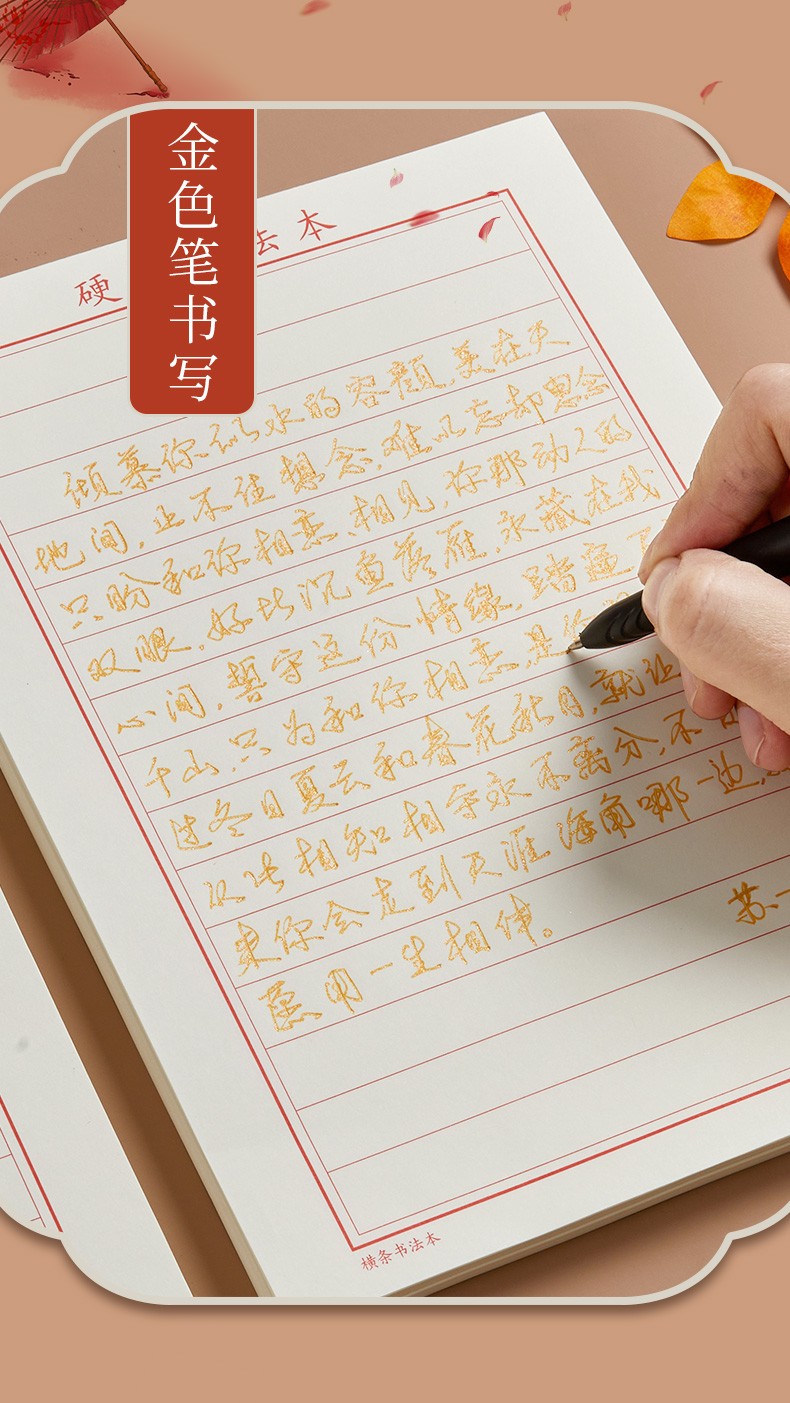 金色笔书写
硬 法本
倾慕你似水的容颜,美在天
地间,止不住想念,难以忘却思念
只盼和你相恋、相见,你那动人的
双眼,好比沉鱼落雁,永藏在我
心间,誓守这份情缘,踏遍了
千山,只为和你相恋,是你
过冬日夏云和春花秋月,就让
从此相知相守永不离分,不
来你会走到天涯海角哪一边,
愿用一生相伴。
苏
横条书法本